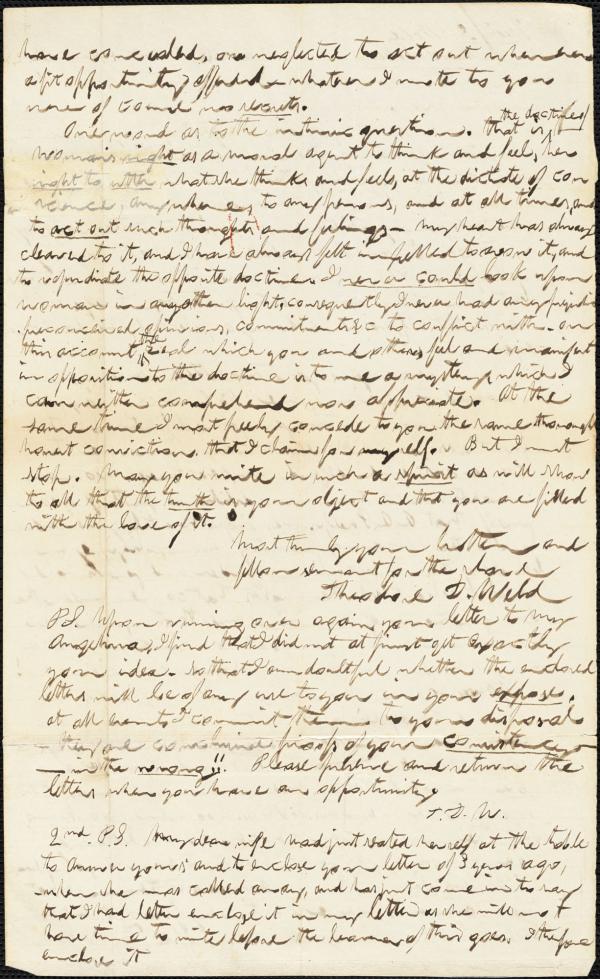 have concealed, or neglected to act out when ever
a fit opportunity offered - whatever I wrote to you
were of course no secrets.
One word as to the intrinsic question. that is, the doctrine of
woman's right as a moral agent to think and feel, her
right to utter what she thinks and feels, at the dictate of con
science, any where, to any persons, and at all times, and
to act out such thoughts and feelings - my heart has always
cleaved to it, and I have always felt impelled to avow it, and
to repudiate the opposite doctrine. I never could look upon
woman in any other light, consequently I never had any prejudice
preconceived opinions, commitments &c to conflict with. on
this account the zeal which you and others feel and manifest
in opposition to the doctrine is to me a mystery, which I
can neither comprehend nor appreciate. At the
same time I most freely concede to you the same thorough
honest conviction, that I claim for myself. But I must
stop. May you write in such a spirit as will show
to all that the truth is your object and that you are filled
with the love of it.
Most truly your brother and
fellow servant for the slave
Theodore D. Weld
P.S. Upon running over again your letter to my
Angelina, I find that I did not at first get exactly
your idea - so that I am doubtful whether the enclosed
letters will be of any use to you in your exposé.
at all events I commit them to your disposal
- they are conclusive proofs of your consistency
- in the wrong!! Please preserve and return the
letters when you have an opportunity.
T. D. W.
2nd. P.S. My dear wife had just seated herself at the table
to answer yours and to enclose your letter of 3 years ago,
when she was called away, and has just come in to say
that I had better enclose it in my letter as she will not
have time to write before the bearer of this goes. I therefore
enclose it